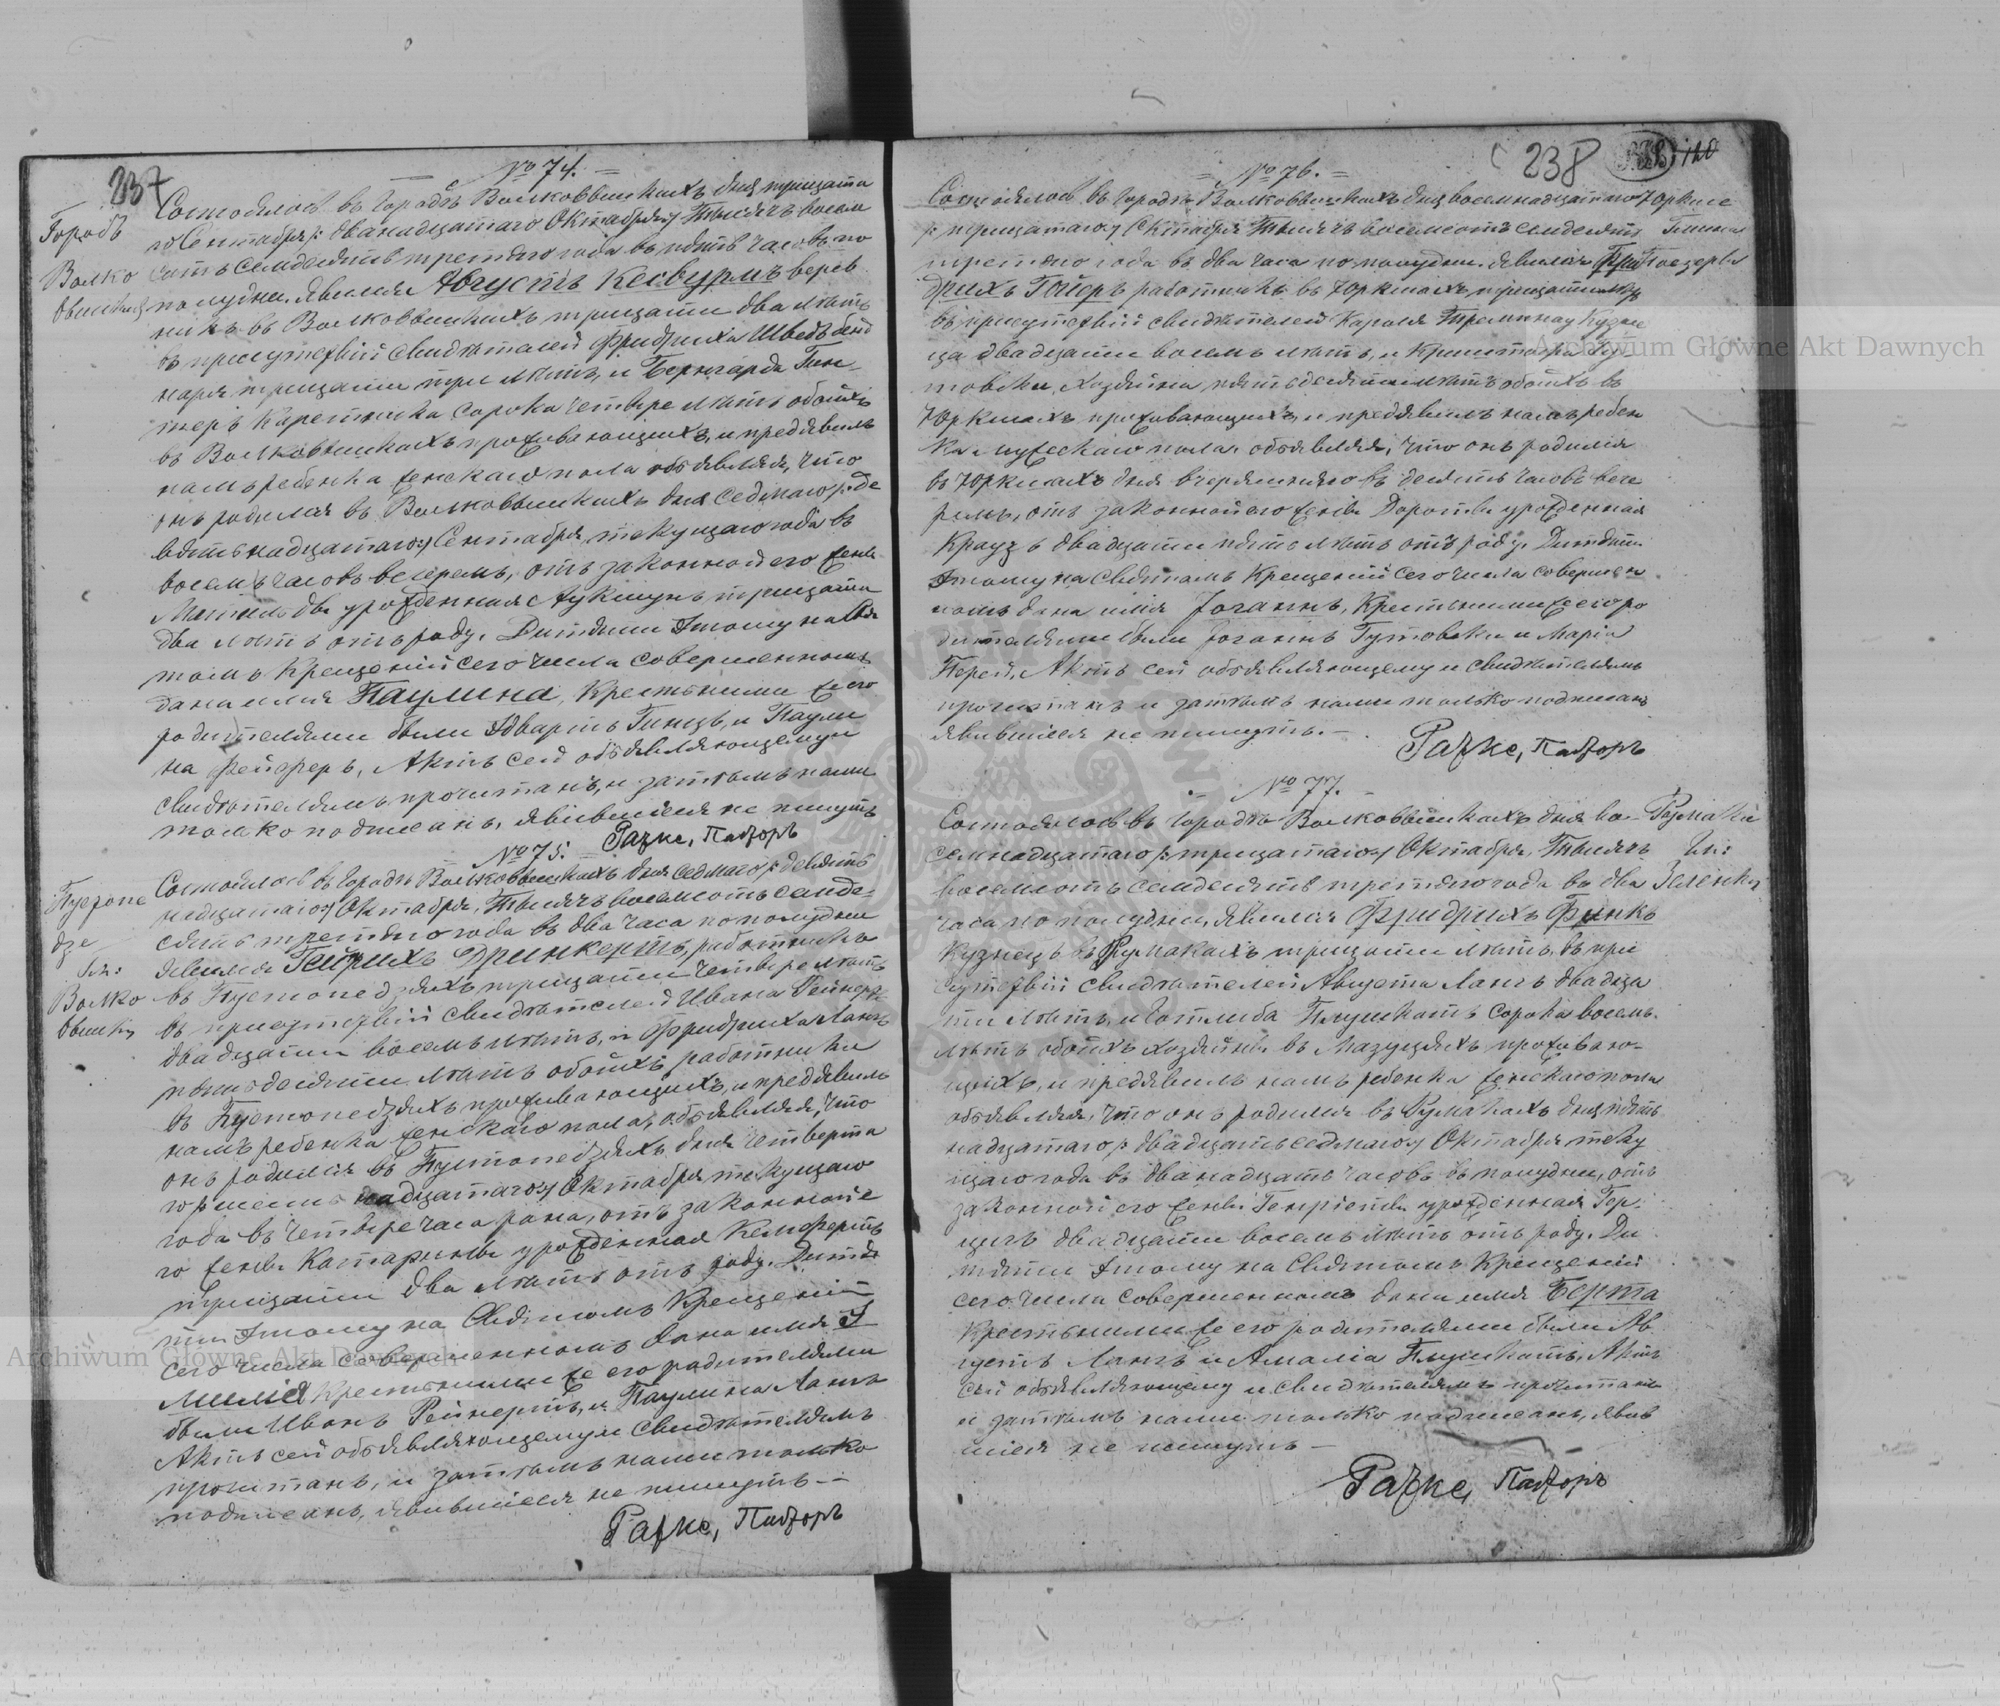 237
№ 74.
Городъ
Волко
вышки
Состоялось въ городѣ Волковышкахъ дня тридцата
го Сентября /: двѣнадцатаго Октября :/ Тысяча восем
сотъ семдесятъ третяго года въ пять часовъ по
полудни. Явился Августъ Кесвурмъ верев
никъ въ Волковышкахъ тридцати два лѣтъ
въ присутствіи свидѣтелей Фридриха Шведъ
наря тридцати три лѣтъ, и Бернгарда Гин
теръ Каретника сорока четыре лѣтъ обоихъ
въ Волковышкахъ проживающихъ, и предявилъ
намъ ребенка женскаго пола объявляя, что
онъ родился въ Волковышкахъ дня седмаго /: де
вятьнадцатаго :/ Сентября, текущаго года въ
восемь часовъ вечеромъ, отъ законной его жены
урожденная тридцати
два лѣтъ отъ роду. Дитяти этому на Свя
томъ Крещеніи сего числа совершенномъ
дано имя Паулина, Крестными же его
родителями были Эдвартъ Гинцъ, и Паули
на Фейферъ, Актъ сей объявляющему и
свидѣтелямъ прочитанъ, и затѣмъ нами
только подписанъ, явившіеся не пишутъ
Рачке, Пасторъ
№ 75.
Пустопе
дзе
Гм:
Волко
вышки
Состоялось въ городѣ Волковышкахъ дня седмаго /: девять
надцатаго :/ Октября, Тысяча восемсотъ семде-
сятъ третяго года въ два часа по полудни
Явился Гейрихъ Дринкертъ, работникъ
въ Пустопедзяхъ тридцати четыре лѣтъ
въ присутствіи свидѣтелей Ивана Рейнертъ
двадцати восемь лѣтъ, и Фридриха Лангъ
пятьдесяти лѣтъ обоихъ работники
въ Пустопедзяхъ проживающихъ, и предявилъ
намъ ребенка женскаго пола, объявляя, что
онъ родился въ Пустопедзяхъ дня четверта
го /: шестьнадцатаго :/ Октября текущаго
года въ четыре часа рана, отъ законной е
го жены Катарины урожденная Кемфертъ
тридцати два лѣтъ отъ роду. Дитя
ти этому на Святомъ Крещеніи
сего числа совершенномъ дано имя Э
милія Крестными же его родителями
были Иванъ Рейнертъ, и Паулина Лангъ
Актъ сей объявляющему и свидѣтелямъ
прочитанъ, и затѣмъ нами только
подписанъ, явившіеся не пишутъ.—
Рачке, Пасторъ
238
№ 76.
Состоялось въ городѣ Волковышкахъ дня восемнадцатаго
/: тридцатаго :/ Октября Тысяча восемсотъ семдесятъ
третяго года въ два часа по полудни. Явился Фри
дрихъ Гойеръ работникъ въ Юркшахъ, тридцати лѣтъ
въ присутствіи свидѣтелей Кароля Кузне
ца двадцати восемь лѣтъ, и Криштофа Гу
товски, Хозяина пятьдесяти лѣтъ обоихъ въ
Юркшахъ проживающихъ, и предявилъ намъ ребен
ка мужескаго пола, объявляя, что онъ родился
въ Юркшахъ дня вчерашняго въ десять часовъ вече
ромъ, отъ законной его жены Доротеи урожденная
Краузъ двадцати пять лѣтъ отъ роду. Дитяти
этому на Святомъ Крещеніи сего числа совершен
номъ дано имя Іоганнъ, Крестными же его ро
дителями были Іоганнъ Гутовски и Марія
Актъ сей объявляющему и свидѣтелямъ
прочитанъ и затѣмъ нами только подписанъ
явившіеся не пишутъ.—
Рачке, Пасторъ
№ 77.
Состоялось въ городѣ Волковышкахъ дня во-
семнадцатаго /: тридцатаго :/ Октября, Тысяча
восемсотъ семдесятъ третяго года въ два
часа по полудни, Явился Фридрихъ Финкъ
Кузнецъ въ Румокахъ тридцати лѣтъ, въ при
сутствіи свидѣтелей Августа Лангъ двадца
ти лѣтъ, и Готлиба Плушкатъ сорока восемь
лѣтъ обоихъ хозяины въ проживаю-
щихъ, и предявилъ намъ ребенка женскаго пола
объявляя, что онъ родился въ Румокахъ дня пять
надцатаго /: двадцать седмаго :/ Октября теку
щаго года въ двѣнадцать часовъ въ полудни, отъ
законной его жены Генріеты урожденная Гер
двадцати восемь лѣтъ отъ роду. Ди
тяти этому на Святомъ Крещеніи
сего числа совершенномъ дано имя Берта
Крестными же его родителями были Ав
густъ Лангъ и Амалія Плушкатъ, Актъ
сей объявляющему и свидѣтелямъ прочитанъ
и затѣмъ нами только подписанъ, явив
шіеся не пишутъ —
Рачке, Пасторъ
Archiwum Główne Akt Dawnych
Archiwum Główne Akt Dawnych